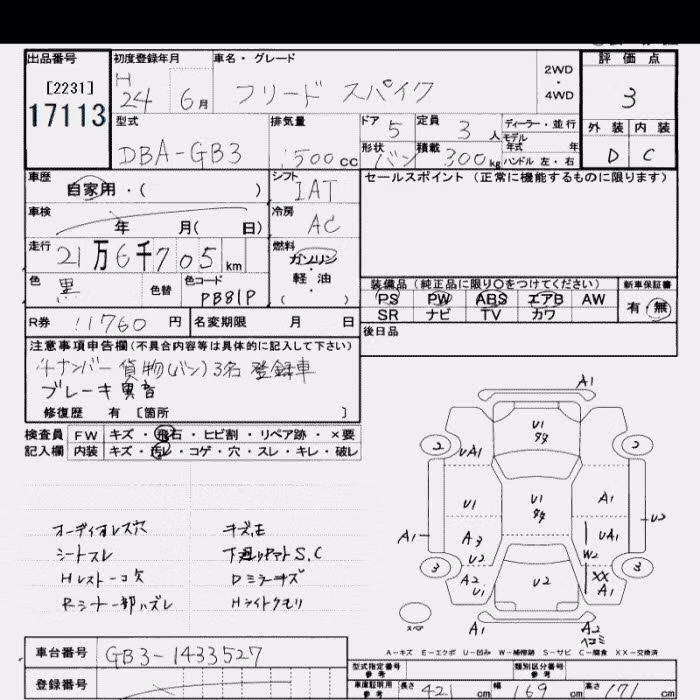 出品番号 初度登録年月 車名・グレード 評価点
[2231]
17113
H 24 6月
フリード スパイク
2WD
・
4WD
3
外装 内装
D C
型式
DBA-GB3
排気量
1500cc
ドア 5
定員 3人
ディーラー・並行
モデル
年式 年
形状 バン
積載 300kg
ハンドル 左・右
車歴 自家用・( )
シフト IAT
セールスポイント(正常に機能するものに限ります)
車検 年 月( 日)
冷房 AC
走行 21万6千705km
燃料
ガソリン
・
軽油
・
( )
色 黒 色替 色コード PB81P
装備品(純正品に限り○をつけてください) 新車保証書
PS PW ABS エアB AW
SR ナビ TV カワ
有・無
R券 11760円 名変期限 月 日
後日品
注意事項申告欄(不具合内容等は具体的に記入して下さい)
4ナンバー 貨物(バン)3名 登録車
ブレーキ異音
修復歴 有 [箇所 ]
検査員 FW キズ・飛石・ヒビ割・リペア跡・×要
記入欄 内装 キズ・汚レ・コゲ・穴・スレ・キレ・破レ
オーディオレス穴
シートスレ
Hレスト一コ欠
Rシナー部ハズレ
下廻りサットS.C
Dミラーキズ
Hライトクモリ
A1
2 2
U1
タタ
UA1
U1
U1
タタ
A1
A1
A3
U2
UA1
U2
W2
3 3
A2
U1
U2
XX
A1
スペア
A1
A2
ヘコミ
A-キズ E-エクボ U-凹み W-補修跡 S-サビ C-腐食 XX-交換済
車台番号 GB3-1433527
登録番号
型式指定番号
参考
類別区分番号
参考
車庫証明用
参考
長さ 421cm 幅 169cm 高さ 171cm